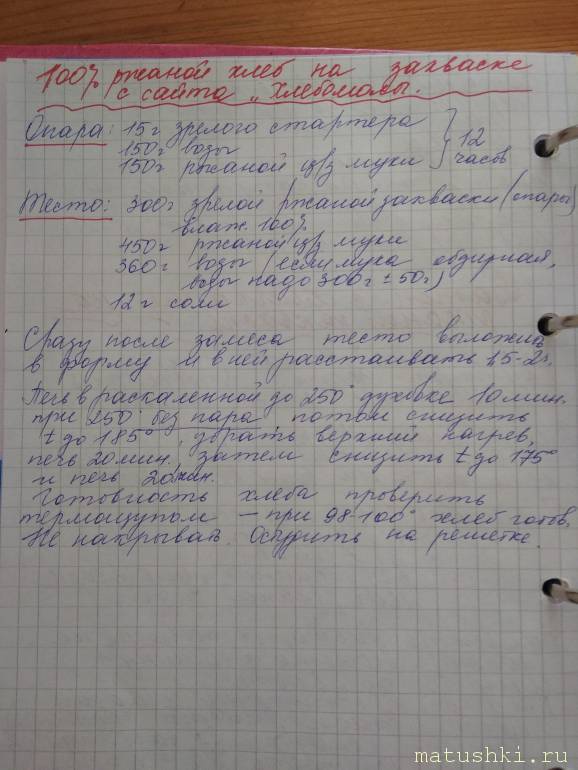 100% ржаной хлеб на закваске
с сайта „Хлебомолы.
Опара: 15 г зрелого стартера
150 г воды
150 г ржаной ц/з муки } 12 часов
Тесто: 300 г зрелой ржаной закваски (опары)
влаж. 100%
450 г ржаной ц/з муки
360 г воды (если мука обдирная,
воды надо 300 г ± 50 г)
12 г соли
Сразу после замеса тесто выложить
в форму и в ней расстаивать 1,5-2 ч.
Печь в раскаленной до 250° духовке 10 мин.
при 250° без пара, потом снизить
t до 185°, убрать верхний нагрев,
печь 20 мин., затем снизить t до 175°
и печь 20 мин.
Готовность хлеба проверить
термощупом – при 98-100° хлеб готов.
Не накрывать. Остудить на решетке.
matushki.ru